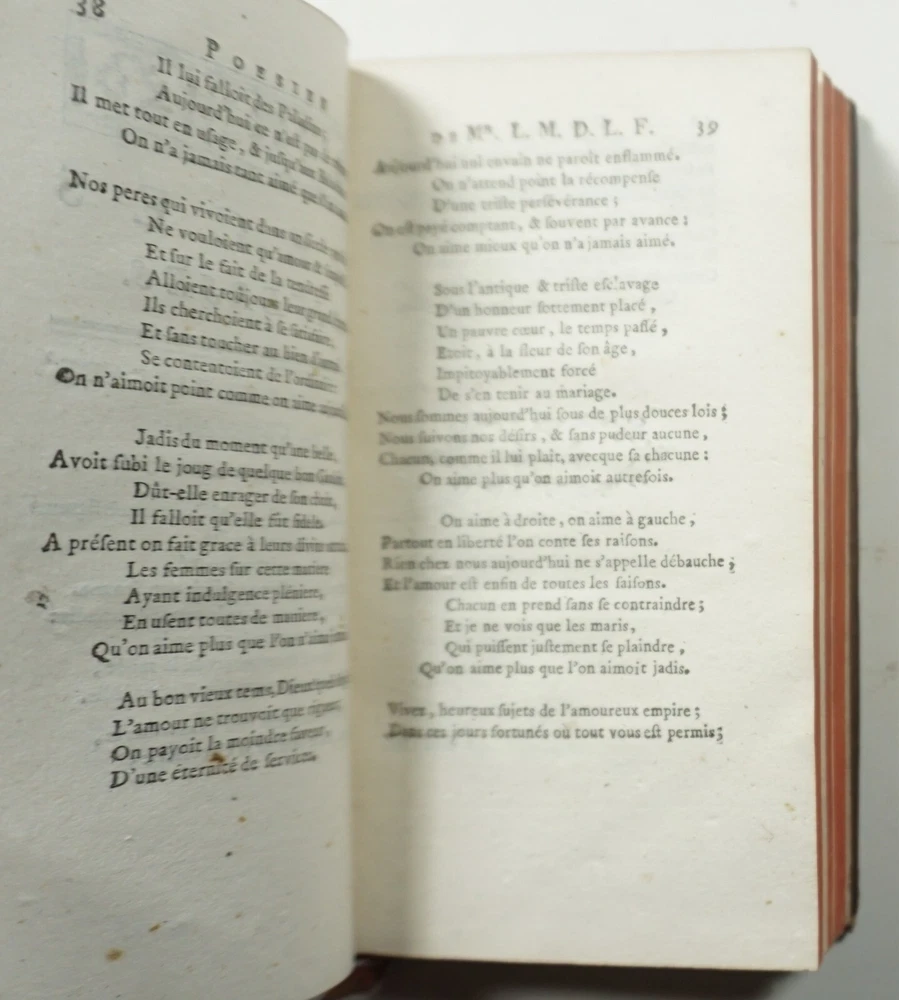 38
POESIES
Il lui falloit des Paladins;
Aujourd'hui ce n'est pas de
Il met tout en usage, & jusqu'aux
On n'a jamais tant aimé que
Nos peres qui vivoient dans un
Ne vouloient qu'amour &
Et sur le fait de la tendresse
Alloient toûjours leur grand
Ils cherchoient à se
Et sans toucher au bien
Se contentoient de l'ordinaire
On n'aimoit point comme on aime
Jadis du moment qu'une belle,
Avoit subi le joug de quelque bon
Dût-elle enrager de son choix,
Il falloit qu'elle fût fidele.
A présent on fait grace à leurs
Les femmes sur cette matiere
Ayant indulgence pléniere,
En usent toutes de maniere,
Qu'on aime plus que l'on n'aima
Au bon vieux tems,
L'amour ne trouvoit que
On payoit la moindre faveur,
D'une éternité de services.
DE Mr. L. M. D. L. F. 39
Aujourd'hui nul envain ne paroît enflammé.
On n'attend point la récompense
D'une triste persévérance;
On est payé comptant, & souvent par avance:
On aime mieux qu'on n'a jamais aimé.
Sous l'antique & triste esclavage
D'un honneur sottement placé,
Un pauvre cœur, le temps passé,
Etoit, à la fleur de son âge,
Impitoyablement forcé
De s'en tenir au mariage.
Nous sommes aujourd'hui sous de plus douces lois;
Nous suivons nos désirs, & sans pudeur aucune,
Chacun, comme il lui plaît, avecque sa chacune:
On aime plus qu'on aimoit autrefois.
On aime à droite, on aime à gauche,
Partout en liberté l'on conte ses raisons.
Rien chez nous aujourd'hui ne s'appelle débauche;
Et l'amour est enfin de toutes les saisons.
Chacun en prend sans se contraindre;
Et je ne vois que les maris,
Qui puissent justement se plaindre,
Qu'on aime plus que l'on aimoit jadis.
Vivez, heureux sujets de l'amoureux empire;
Dans ces jours fortunés où tout vous est permis;